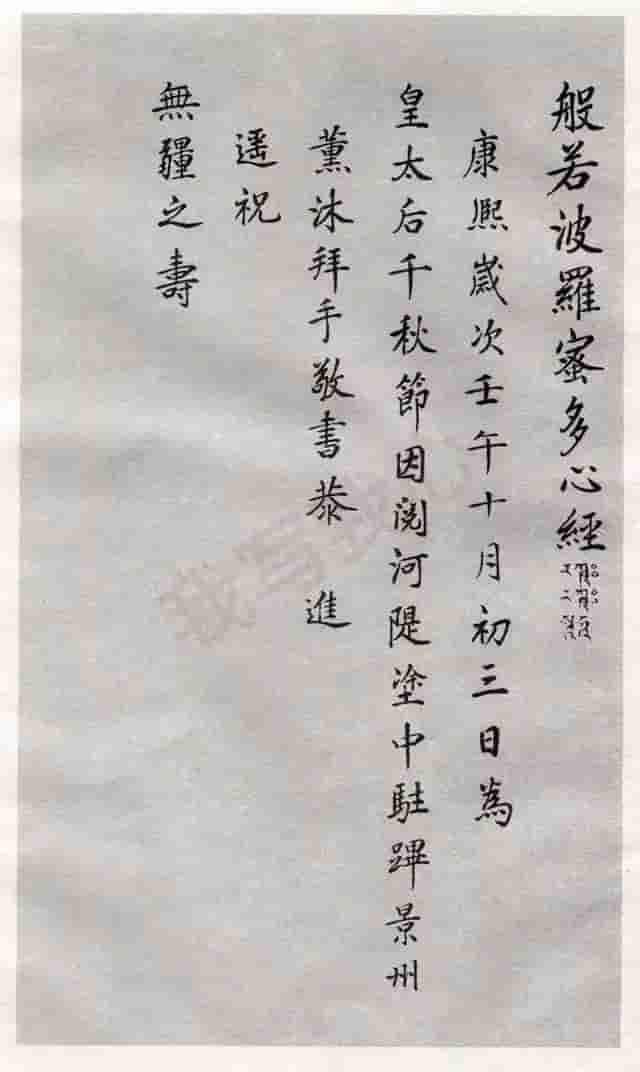 般若波羅蜜多心經
康熙歲次壬午十月初三日為
皇太后千秋節因閱河隄塗中駐蹕景州
薰沐拜手敬書恭　進
遥祝
無疆之壽